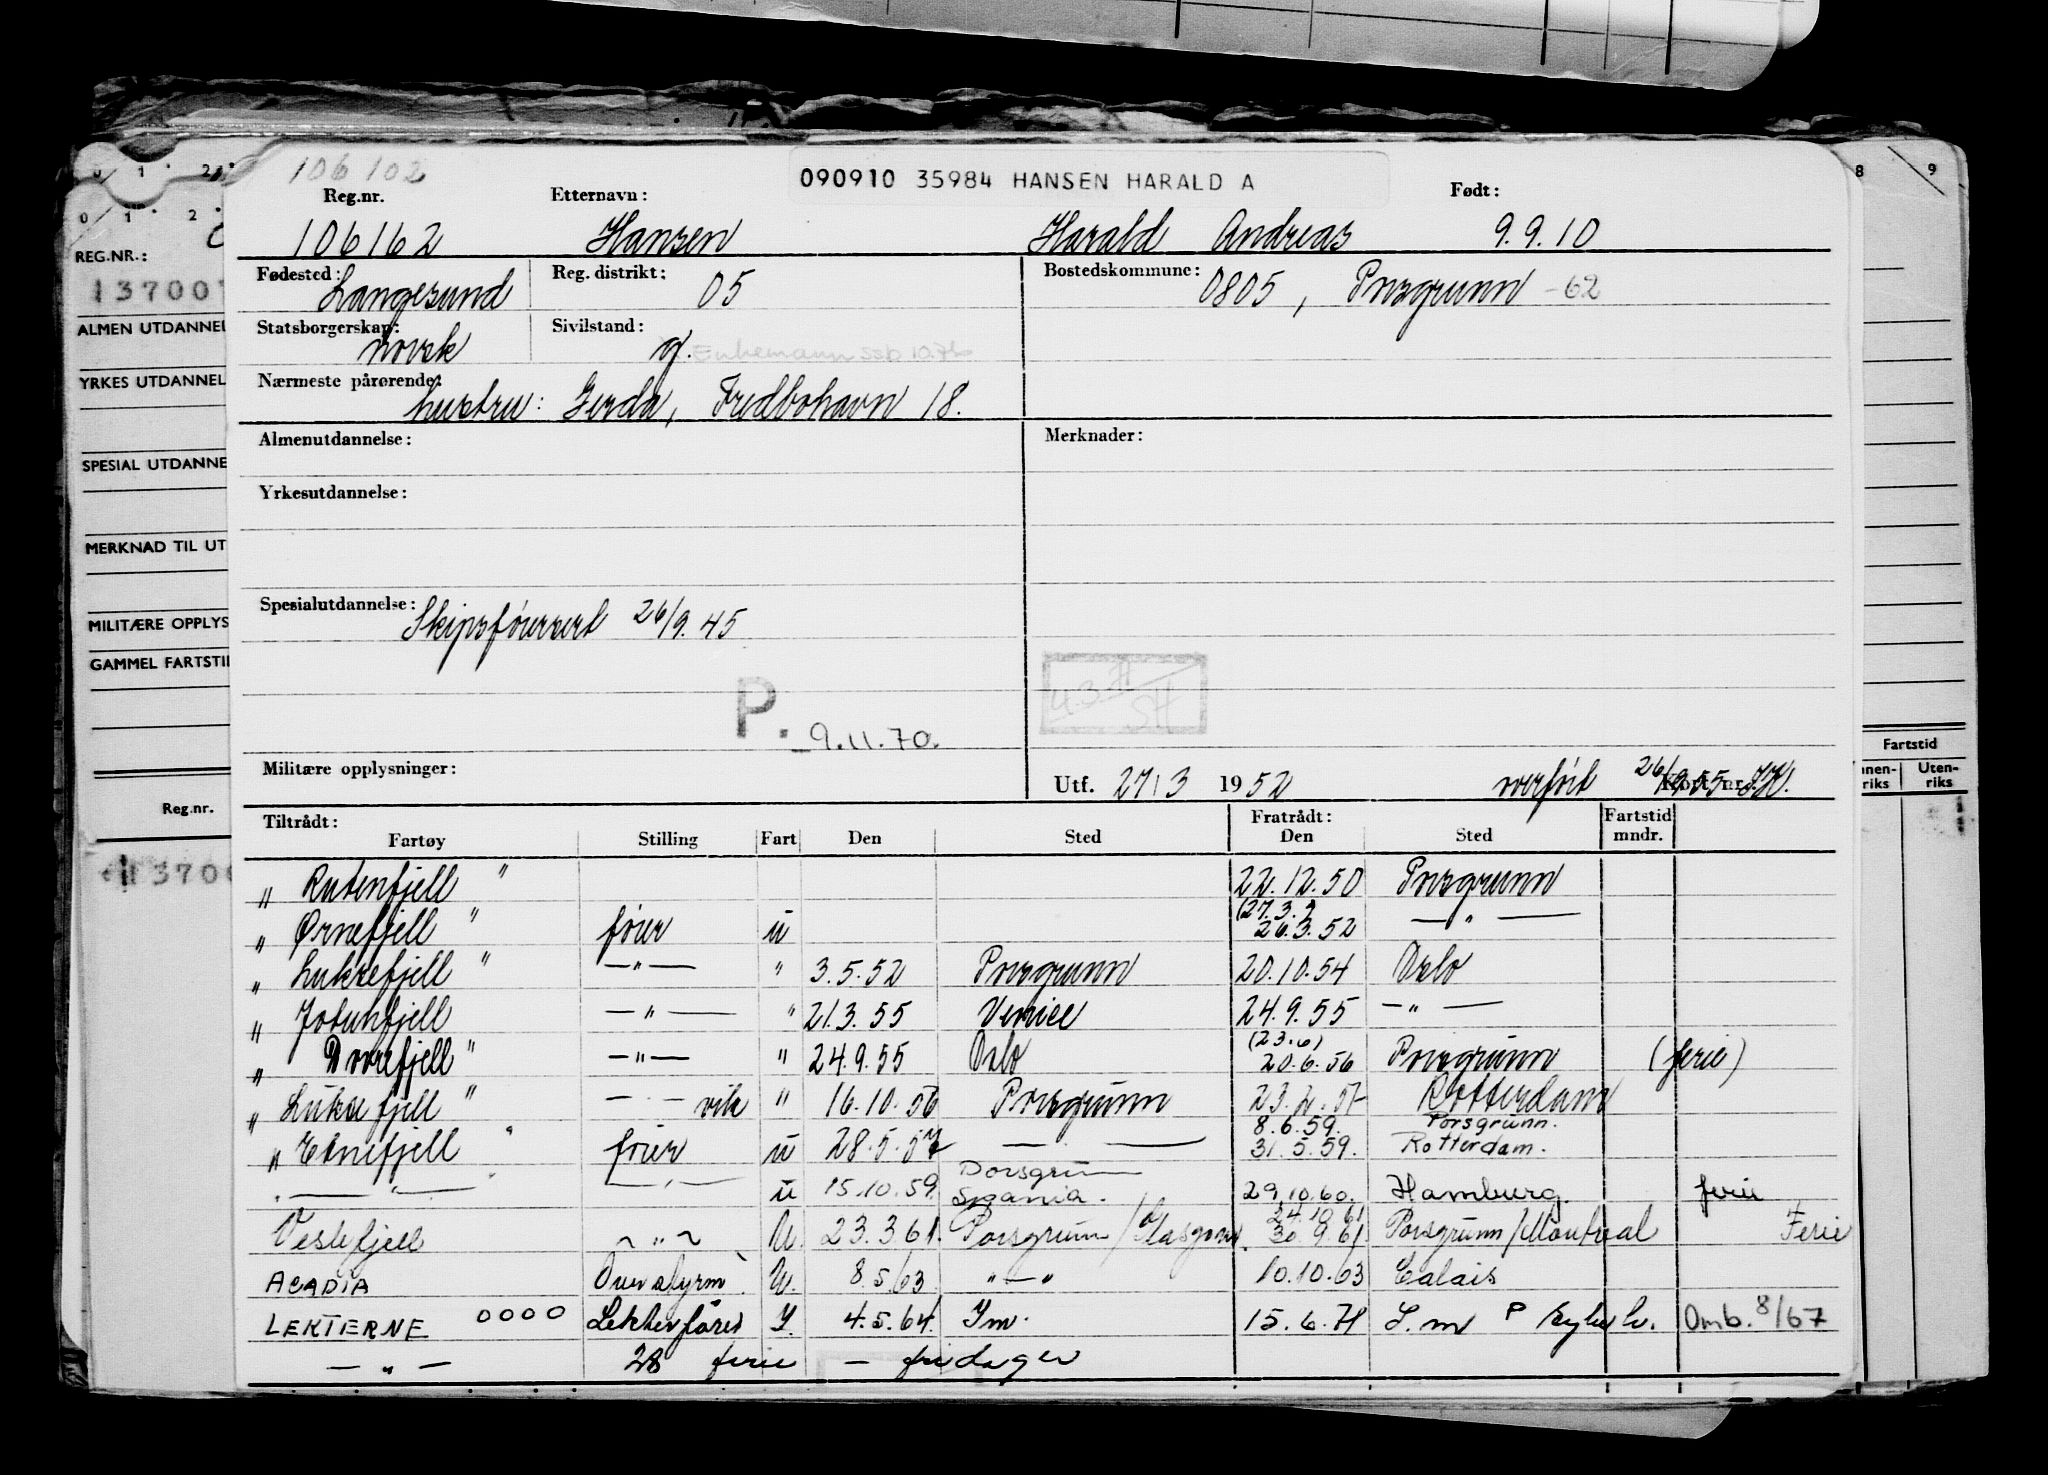 0 1 2
0 1 2
8 9
REG.NR.:
137007
ALMEN UTDANNEL
YRKES UTDANNEL
SPESIAL UTDANNE
MERKNAD TIL UT
MILITÆRE OPPLYS
GAMMEL FARTSTI
Reg.nr.
Fartstid
Uten-
riks riks
106102
090910 35984 HANSEN HARALD A
Reg.nr. Etternavn: Født:
106162 Hansen Harald Andreas 9.9.10
Fødested: Langesund Reg. distrikt: 05 Bostedskommune: 0805, Porsgrunn -62
Statsborgerskap: norsk Sivilstand: g. Enkemann SSB 10.76
Nærmeste pårørende: hustru: Gerda, Fredbohavn 18.
Almenutdannelse: Merknader:
Yrkesutdannelse:
Spesialutdannelse: Skipsførersert 26/9.45
P. 9.11.70.
Militære opplysninger: Utf. 27/3 1952 overført 26/9.55
Tiltrådt: Fratrådt: Fartstid
Fartøy Stilling Fart Den Sted Den Sted mndr.
" Rutenfjell " 22.12.50 Porsgrunn
(27.3.)
" Ørnefjell " fører u 26.3.52 — " —
" Luksefjell " — " — " 3.5.52 Porsgrunn 20.10.54 Oslo
" Jotunfjell — " — " 21.3.55 Venice 24.9.55 — " —
(23.6)
" Dovrefjell " — " — " 24.9.55 Oslo 20.6.56 Porsgrunn (ferie)
" Luksefjell " — " — vik " 16.10.56 Porsgrunn 23.2.57 Rotterdam
8.6.59. Porsgrunn.
" Etnefjell " fører u 28.5.57 — " — 31.5.59. Rotterdam.
Porsgrunn
" — " — " — " — u 15.10.59. Spania. 29.10.60. Hamburg. ferie
24.10.61
Vestefjell ~ " ~ U. 23.3.61. Porsgrunn/Glasgow. 30.9.61 Porsgrunn/Montreal Ferie
ACADIA Overstyrm. U. 8.5.63. " — " 10.10.63 Calais
LEKTERNE 0000 Lekterfører I. 4.5.64. Im. 15.6.71 S.m P Omb. 8/67
— " — 28 ferie — fridager